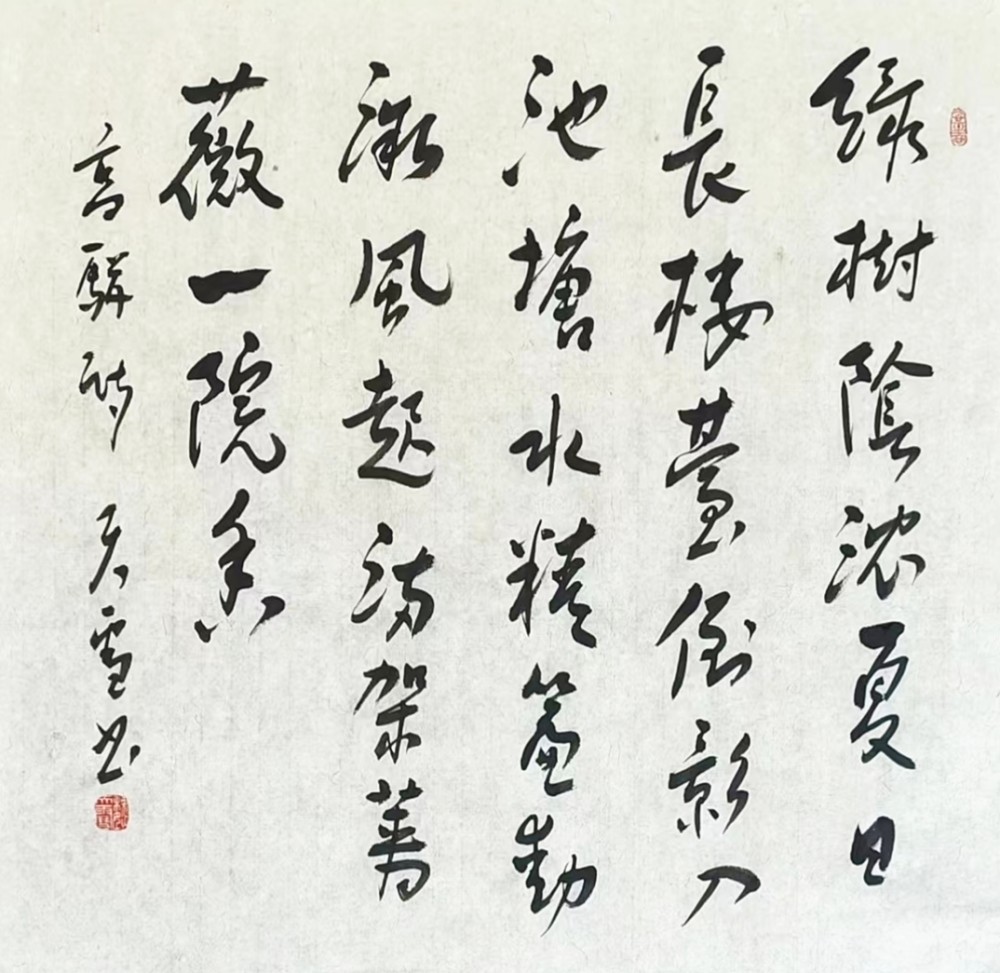 緑樹陰濃夏日
長樓臺倒影入
池塘水精簾動
微風起滿架薔
薇一院香
高駢詩 天雪书